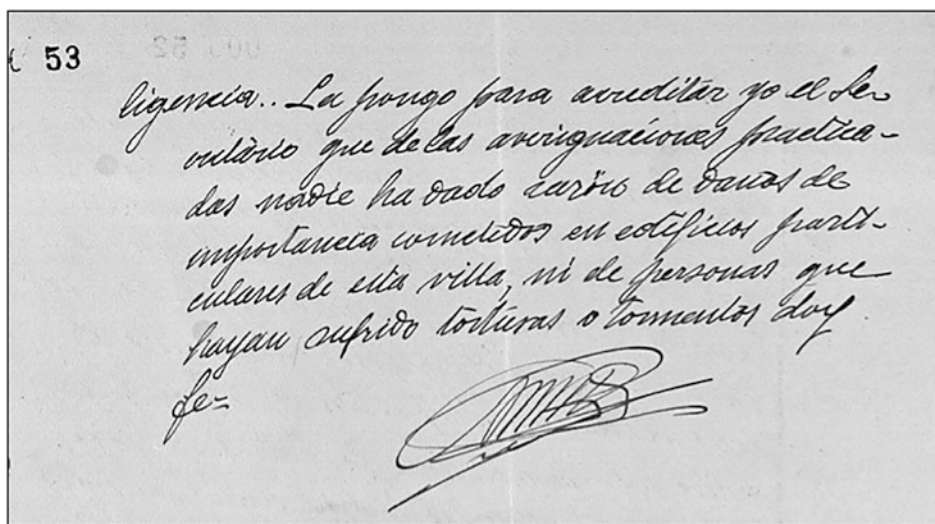 53
ligencia.. La pongo para acreditar yo el Se-
cretario que de las averiguaciones practica-
das nadie ha dado razón de daños de
importancia cometidos en edificios parti-
culares de esta villa, ni de personas que
hayan sufrido torturas o tormentos doy
fe-